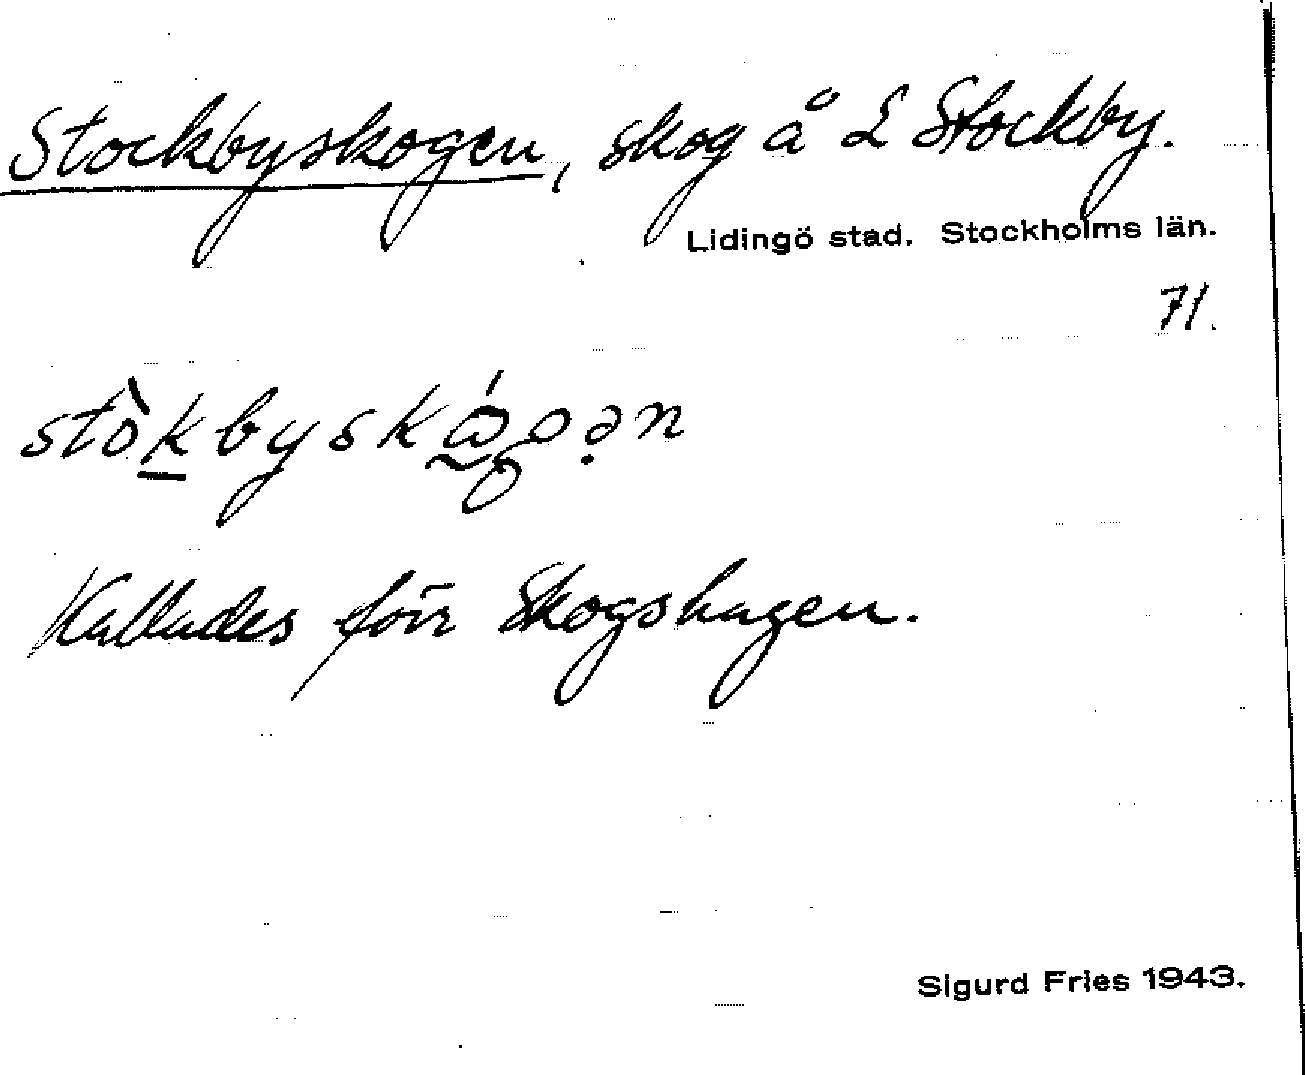 Stockbyskogen, skog å L Stockby.
Lidingö stad. Stockholms län.
71.
stòkbyskógən
Kallades förr Skogshagen.
Sigurd Fries 1943.